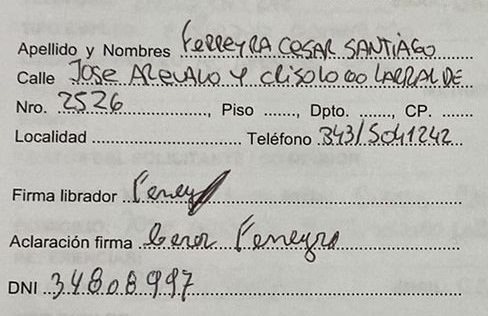 Apellido y Nombres FERREYRA CESAR SANTIAGO
Calle JOSE AREVALO Y CRISOLOGO LARRALDE
Nro. 2526, Piso ......, Dpto. ......, CP. ......
Localidad ........................ Teléfono 343/5041242
Firma librador Ferrey
Aclaración firma Cesar Ferreyra
DNI 34808997